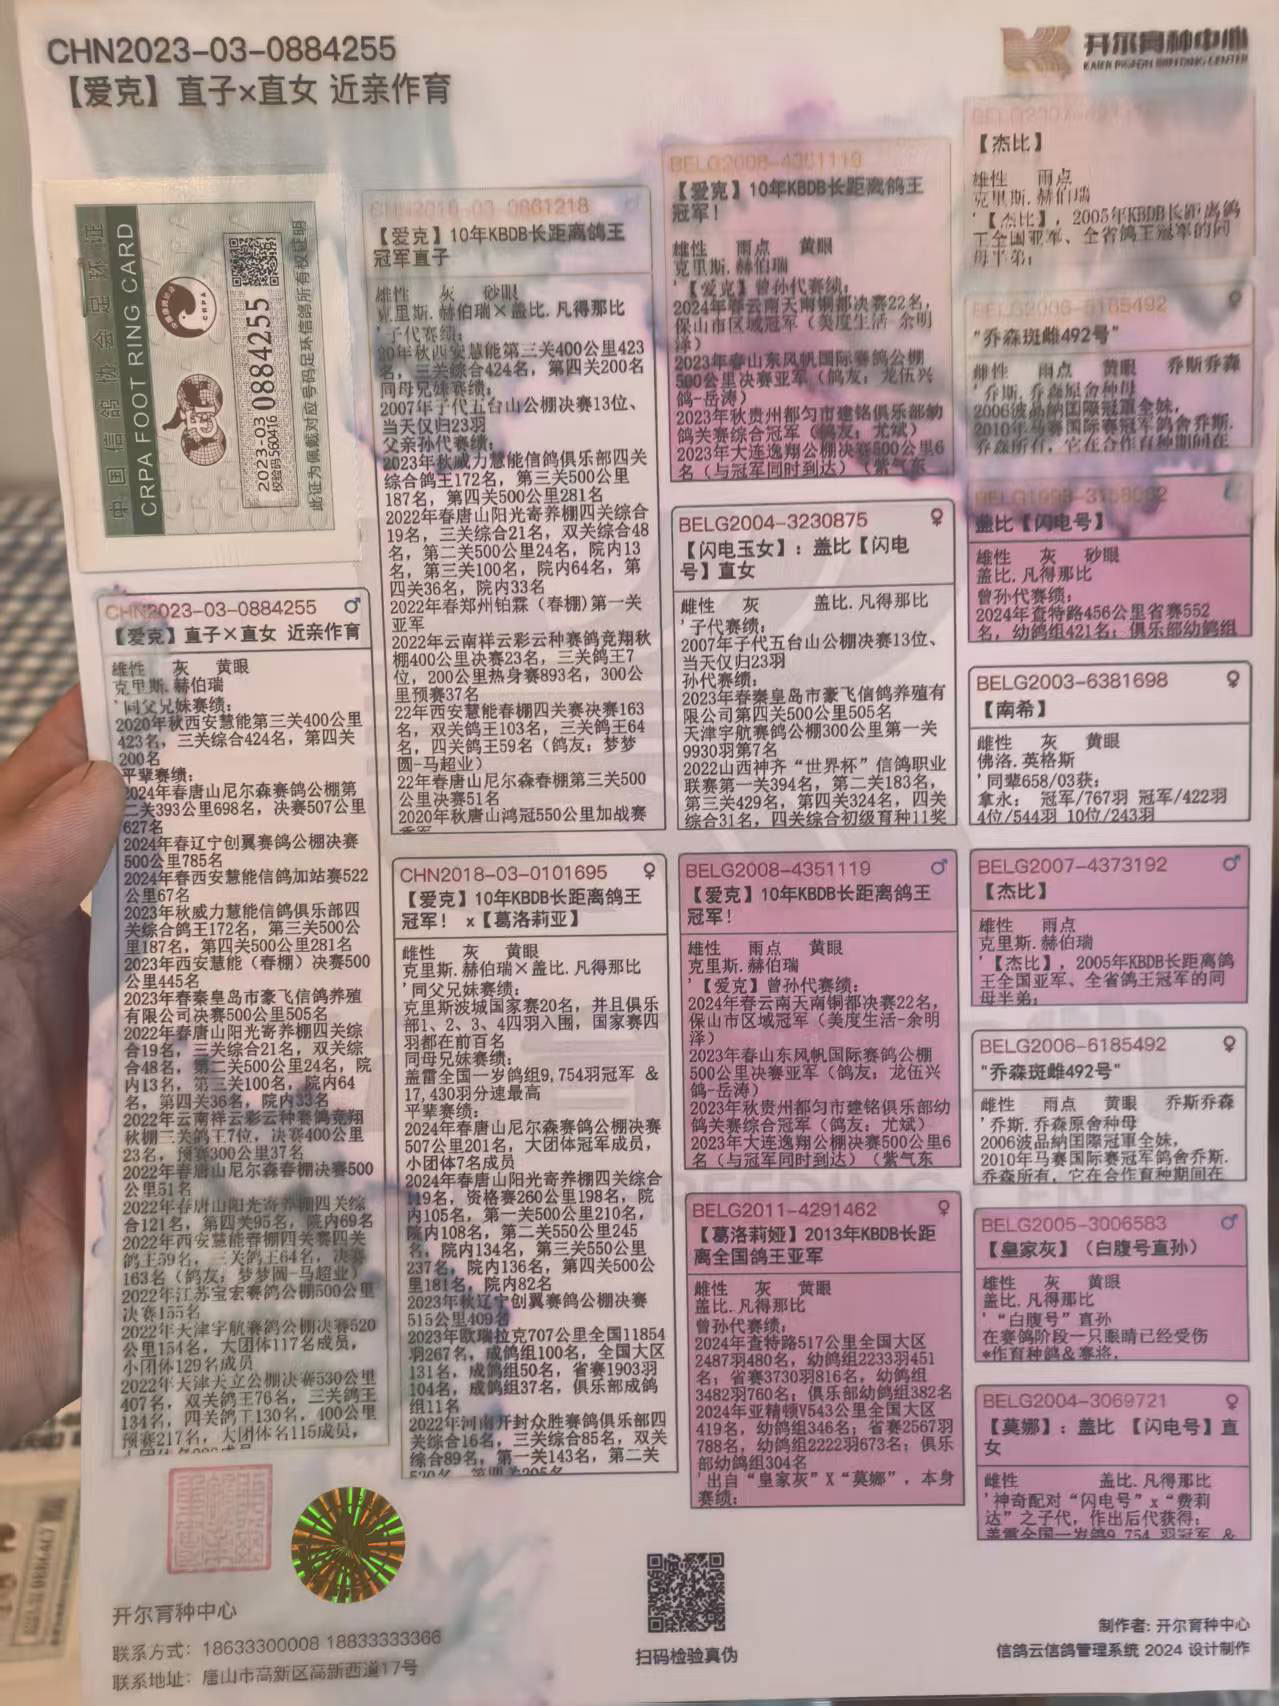 CHN2023-03-0884255
【爱克】直子×直女 近亲作育
开尔育种中心
KAIER PIGEON BREEDING CENTER
中国信鸽协会足环证
CRPA FOOT RING CARD
CRPA
2023-03 0884255
校验码560416
此证为佩戴对应号码足环信鸽所有权证明
CHN2023-03-0884255 ♂
【爱克】直子×直女 近亲作育
雄性 灰 黄眼
克里斯.赫伯瑞
'同父兄妹赛绩:
2020年秋西安慧能第三关400公里
423名, 三关综合424名, 第四关
200名
平辈赛绩:
2024年春唐山尼尔森赛鸽公棚第
二关393公里698名, 决赛507公里
627名
2024年春辽宁创翼赛鸽公棚决赛
500公里785名
2024年春西安慧能信鸽加站赛522
公里67名
2023年秋威力慧能信鸽俱乐部四
关综合鸽王172名, 第三关500公
里187名, 第四关500公里281名
2023年西安慧能（春棚）决赛500
公里445名
2023年春秦皇岛市豪飞信鸽养殖
有限公司决赛500公里505名
2022年春唐山阳光寄养棚四关综
合19名, 三关综合21名, 双关综
合48名, 第二关500公里24名, 院
内13名, 第三关100名, 院内64
名, 第四关36名, 院内33名
2022年云南祥云彩云种赛鸽竞翔
秋棚三关鸽王7位, 决赛400公里
23名, 预赛300公里37名
2022年春唐山尼尔森春棚决赛500
公里51名
2022年春唐山阳光寄养棚四关综
合121名, 第四关95名, 院内69名
2022年西安慧能春棚四关赛四关
鸽王59名, 三关鸽王64名, 决赛
163名（鸽友: 梦梦圆-马超业）
2022年江苏宝宏赛鸽公棚500公里
决赛155名
2022年天津宇航赛鸽公棚决赛520
公里154名, 大团体117名成员,
小团体129名成员
2022年天津大立公棚决赛530公里
407名, 双关鸽王76名, 三关鸽王
134名, 四关鸽王130名, 400公里
预赛217名, 大团体名115成员,
03-0861218 ♂
【爱克】10年KBDB长距离鸽王
冠军直子
雄性 灰 砂眼
克里斯.赫伯瑞×盖比.凡得那比
'子代赛绩:
20年秋西安慧能第三关400公里423
名, 三关综合424名, 第四关200名
同母兄妹赛绩:
2007年子代五台山公棚决赛13位、
当天仅归23羽
父亲孙代赛绩:
2023年秋威力慧能信鸽俱乐部四关
综合鸽王172名, 第三关500公里
187名, 第四关500公里281名
2022年春唐山阳光寄养棚四关综合
19名, 三关综合21名, 双关综合48
名, 第二关500公里24名, 院内13
名, 第三关100名, 院内64名, 第
四关36名, 院内33名
2022年春郑州铂霖（春棚)第一关
亚军
2022年云南祥云彩云种赛鸽竞翔秋
棚400公里决赛23名, 三关鸽王7
位, 200公里热身赛893名, 300公
里预赛37名
22年西安慧能春棚四关赛决赛163
名, 双关鸽王103名, 三关鸽王64
名, 四关鸽王59名（鸽友: 梦梦
圆-马超业）
22年春唐山尼尔森春棚第三关500
公里决赛51名
2020年秋唐山鸿冠550公里加战赛
CHN2018-03-0101695 ♀
【爱克】10年KBDB长距离鸽王
冠军! x【葛洛莉亚】
雌性 灰 黄眼
克里斯.赫伯瑞×盖比.凡得那比
'同父兄妹赛绩:
克里斯波城国家赛20名, 并且俱乐
部1、2、3、4四羽入围, 国家赛四
羽都在前百名
同母兄妹赛绩:
盖雷全国一岁鸽组9,754羽冠军 &
17,430羽分速最高
平辈赛绩:
2024年春唐山尼尔森赛鸽公棚决赛
507公里201名, 大团体冠军成员,
小团体7名成员
2024年春唐山阳光寄养棚四关综合
119名, 资格赛260公里198名, 院
内105名, 第一关500公里210名,
院内108名, 第二关550公里245
名, 院内134名, 第三关550公里
237名, 院内136名, 第四关500公
里181名, 院内82名
2023年秋辽宁创翼赛鸽公棚决赛
515公里409名
2023年欧瑞拉克707公里全国11854
羽267名, 成鸽组100名, 全国大区
131名, 成鸽组50名, 省赛1903羽
104名, 成鸽组37名, 俱乐部成鸽
组11名
2022年河南开封众胜赛鸽俱乐部四
关综合16名, 三关综合85名, 双关
综合89名, 第一关143名, 第二关
520名, 第四关205名
BELG2008-4351119
【爱克】10年KBDB长距离鸽王
冠军!
雄性 雨点 黄眼
克里斯.赫伯瑞
'【爱克】曾孙代赛绩:
2024年春云南天南铜都决赛22名,
保山市区域冠军（美度生活-余明
泽）
2023年春山东风帆国际赛鸽公棚
500公里决赛亚军（鸽友: 龙伍兴
鸽-岳涛）
2023年秋贵州都匀市建铭俱乐部幼
鸽关赛综合冠军（鸽友: 尤斌）
2023年大连逸翔公棚决赛500公里6
名（与冠军同时到达）（紫气东
BELG2004-3230875 ♀
【闪电玉女】: 盖比【闪电
号】直女
雌性 灰 盖比.凡得那比
'子代赛绩:
2007年子代五台山公棚决赛13位、
当天仅归23羽
孙代赛绩:
2023年春秦皇岛市豪飞信鸽养殖有
限公司第四关500公里505名
天津宇航赛鸽公棚300公里第一关
9930羽第7名
2022山西神齐“世界杯”信鸽职业
联赛第一关394名, 第二关183名,
第三关429名, 第四关324名, 四关
综合31名, 四关综合初级育种11奖
BELG2008-4351119 ♂
【爱克】10年KBDB长距离鸽王
冠军!
雄性 雨点 黄眼
克里斯.赫伯瑞
'【爱克】曾孙代赛绩:
2024年春云南天南铜都决赛22名,
保山市区域冠军（美度生活-余明
泽）
2023年春山东风帆国际赛鸽公棚
500公里决赛亚军（鸽友: 龙伍兴
鸽-岳涛）
2023年秋贵州都匀市建铭俱乐部幼
鸽关赛综合冠军（鸽友: 尤斌）
2023年大连逸翔公棚决赛500公里6
名（与冠军同时到达）（紫气东
BELG2011-4291462 ♀
【葛洛莉娅】2013年KBDB长距
离全国鸽王亚军
雌性 灰 黄眼
盖比.凡得那比
曾孙代赛绩:
2024年查特路517公里全国大区
2487羽480名, 幼鸽组2233羽451
名; 省赛3730羽816名, 幼鸽组
3482羽760名; 俱乐部幼鸽组382名
2024年亚精顿V543公里全国大区
419名, 幼鸽组346名; 省赛2567羽
788名, 幼鸽组2222羽673名; 俱乐
部幼鸽组304名
'出自“皇家灰”X“莫娜”, 本身
赛绩:
【杰比】
雄性 雨点
克里斯.赫伯瑞
'【杰比】, 2005年KBDB长距离鸽
王全国亚军、全省鸽王冠军的同
母半弟;
BELG2006-6185492 ♀
"乔森斑雌492号"
雌性 雨点 黄眼 乔斯乔森
'乔斯.乔森原舍种母
2006波品纳国际冠軍全妹,
2010年马赛国际赛冠军鸽舍乔斯.
乔森所有, 它在合作育种期间在
盖比【闪电号】
雄性 灰 砂眼
盖比.凡得那比
曾孙代赛绩:
2024年查特路456公里省赛552
名, 幼鸽组421名; 俱乐部幼鸽组
BELG2003-6381698 ♀
【南希】
雌性 灰 黄眼
佛洛.英格斯
'同辈658/03获:
拿永: 冠军/767羽 冠军/422羽
4位/544羽 10位/243羽
BELG2007-4373192 ♂
【杰比】
雄性 雨点
克里斯.赫伯瑞
'【杰比】, 2005年KBDB长距离鸽
王全国亚军、全省鸽王冠军的同
母半弟;
BELG2006-6185492 ♀
"乔森斑雌492号"
雌性 雨点 黄眼 乔斯乔森
'乔斯.乔森原舍种母
2006波品納国際冠軍全妹,
2010年马赛国际赛冠军鸽舍乔斯.
乔森所有, 它在合作育种期间在
BELG2005-3006583 ♂
【皇家灰】（白腹号直孙）
雄性 灰 黄眼
盖比.凡得那比
'“白腹号”直孙
在赛鸽阶段一只眼睛已经受伤
*作育种鸽&赛将,
BELG2004-3069721 ♀
【莫娜】: 盖比 【闪电号】直
女
雌性 盖比.凡得那比
'神奇配对“闪电号”x“费莉
达”之子代, 作出后代获得:
盖雷全国一岁鸽9,754 羽冠军 &
开尔育种中心
联系方式: 18633300008 18833333366
联系地址: 唐山市高新区高新西道17号
扫码检验真伪
制作者: 开尔育种中心
信鸽云信鸽管理系统 2024 设计制作